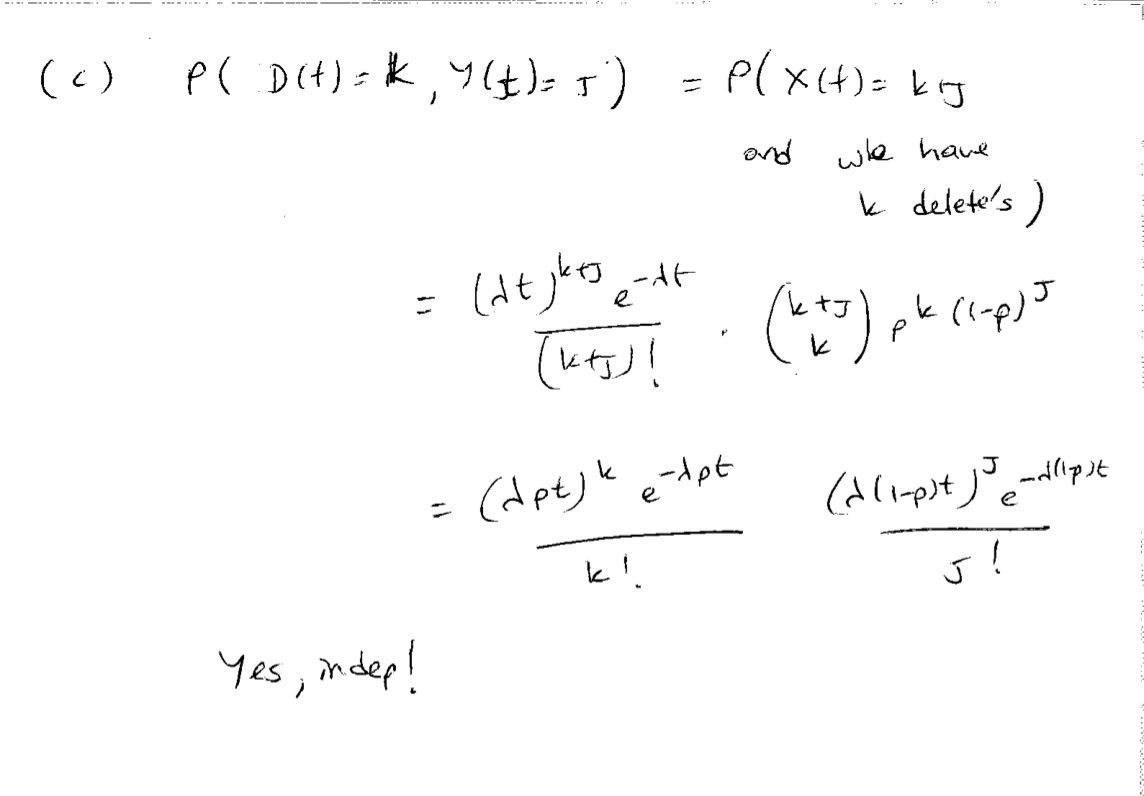 (c) P( D(t) = k, Y(t) = J ) = P( X(t) = k+J
and we have
k delete's )
= (λt)^{k+J} e^{-λt} / (k+J)! · \binom{k+J}{k} p^k (1-p)^J
= (λpt)^k e^{-λpt} / k! (λ(1-p)t)^J e^{-λ(1-p)t} / J!
Yes, indep!